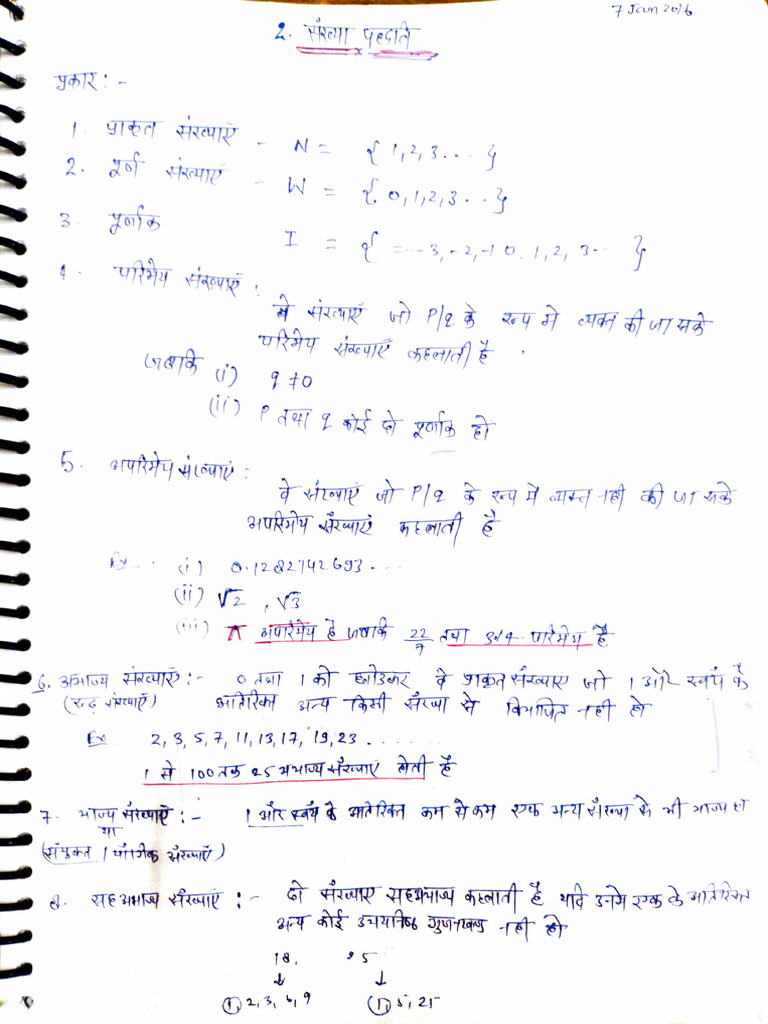 7 Jan 2016
2. संख्या पद्धति
प्रकार :-
1. प्राकृत संख्याएँ - N = { 1, 2, 3 . . . }
2. पूर्ण संख्याएँ - W = { 0, 1, 2, 3 . . }
3. पूर्णांक I = { ---3, -2, -1 0. 1, 2, 3.. }
4. परिमेय संख्याएँ :
वे संख्याएँ जो P/q के रूप मे व्यक्त की जा सके
परिमेय संख्याएँ कहलाती है .
जबकि (i) q ≠ 0
(ii) P तथा q कोई दो पूर्णांक हो
5. अपरिमेय संख्याएं :
वे संख्याएं जो P/q के रूप मे व्यक्त नही की जा सके
अपरिमेय संख्याएं कहलाती है
Ex. (i) 0.1282742693....
(ii) √2 , √3
(iii) π अपरिमेय है जबकि 22/7 तथा 3.14 परिमेय है
6. अभाज्य संख्याएँ :- 0 तथा 1 को छोडकर वे प्राकृत संख्याएं जो 1 और स्वयं के
(रूढ़ संख्याएँ) अतिरिक्त अन्य किसी संख्या से विभाजित नही हो
Ex 2, 3, 5, 7, 11, 13, 17, 19, 23 ........
1 से 100 तक 25 अभाज्य संख्याएं होती है
7. भाज्य संख्याएँ :- 1 और स्वयं के अतिरिक्त कम से कम एक अन्य संख्या के भी भाज्य हो
या
(संयुक्त / यौगिक संख्याएँ)
8. सह अभाज्य संख्याएँ :- दो संख्याएं सहअभाज्य कहलाती है यदि उनमे एक के अतिरिक्त
अन्य कोई उभयनिष्ठ गुणनखण्ड नही हो
18, 25
↓ ↓
1, 2, 3, 6, 9 1, 5, 25